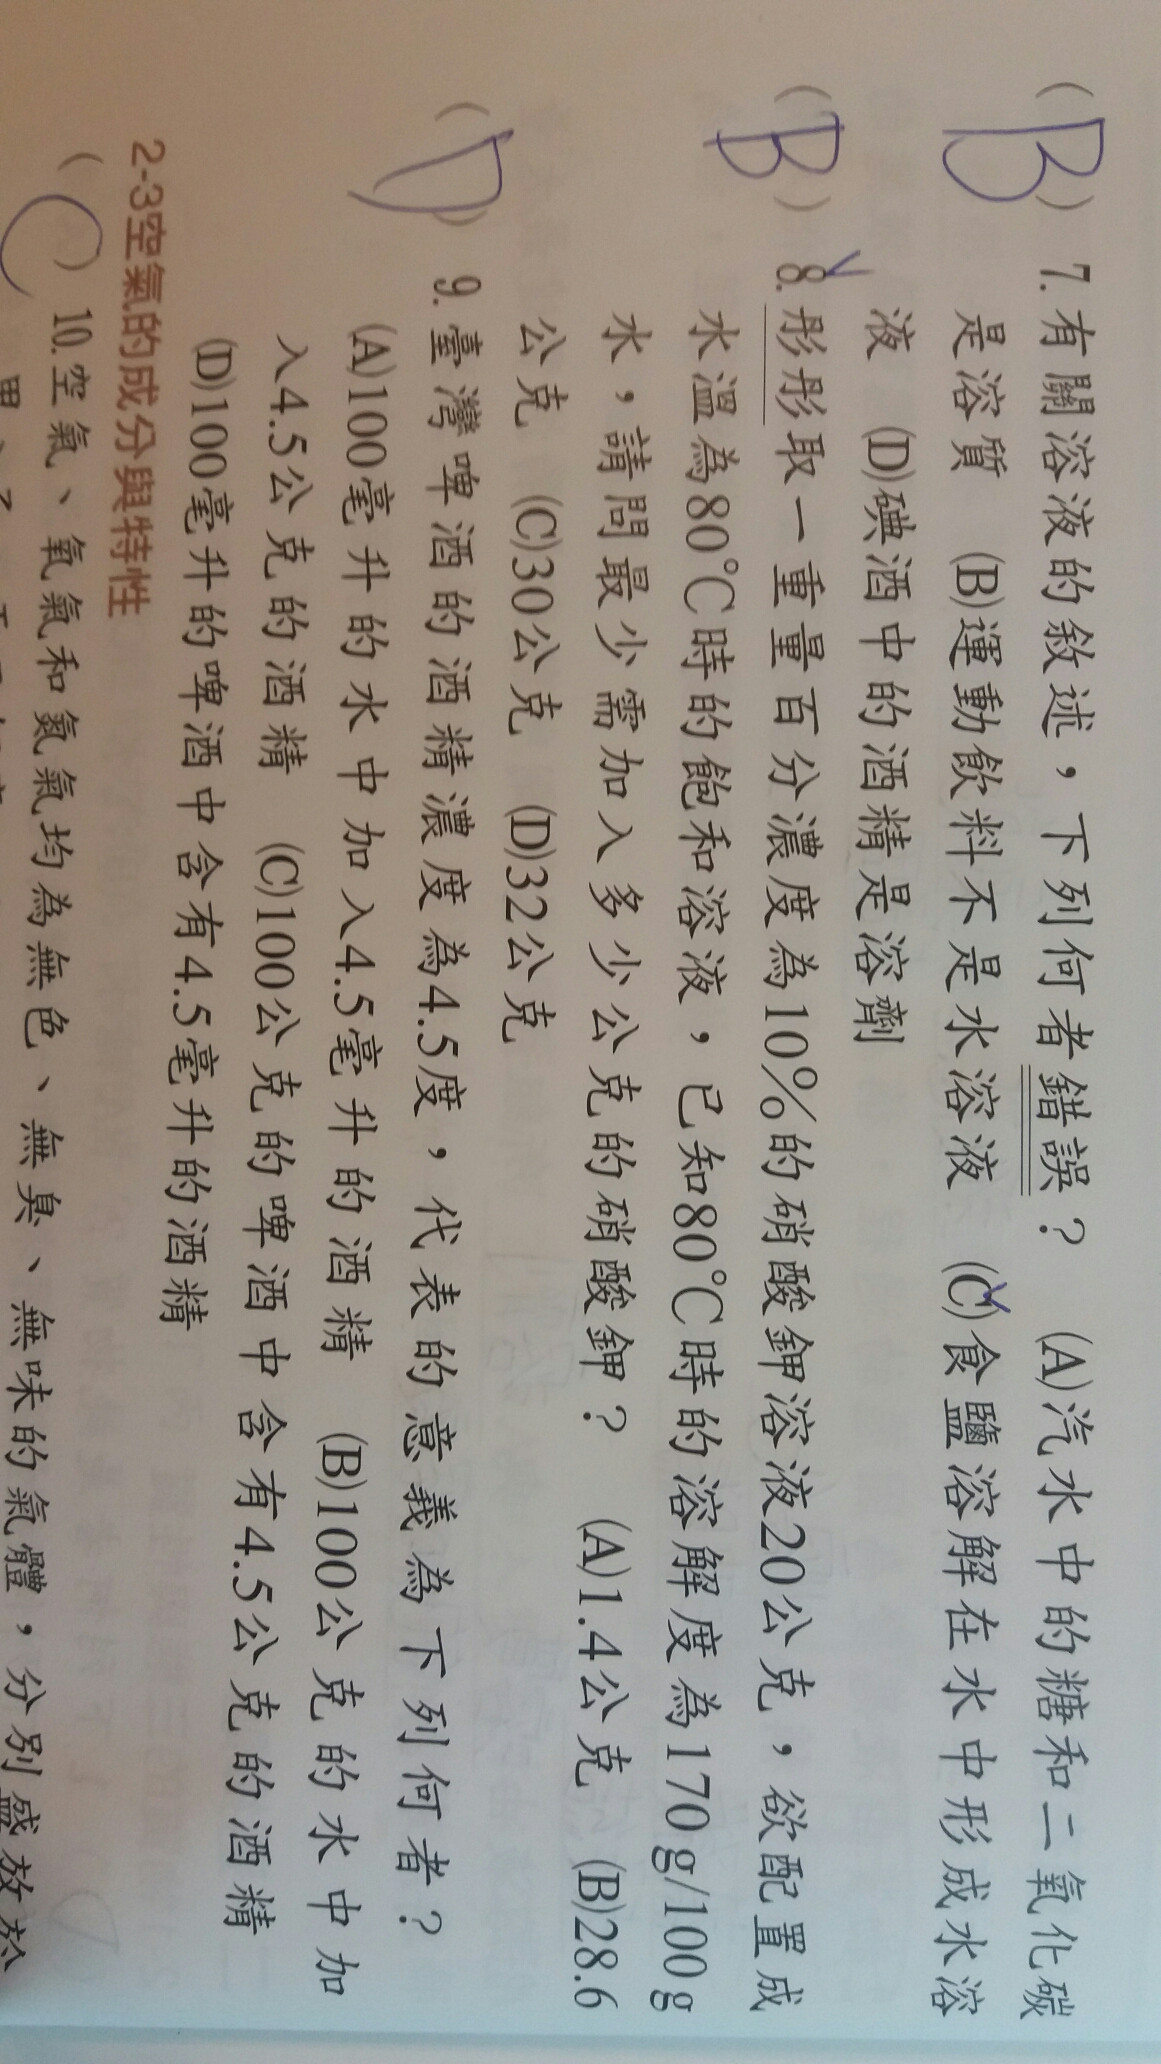 (B) 7. 有關溶液的敘述，下列何者錯誤？ (A)汽水中的糖和二氧化碳
是溶質 (B)運動飲料不是水溶液 (C)食鹽溶解在水中形成水溶
液 (D)碘酒中的酒精是溶劑
(B) 8. 彤彤取一重量百分濃度為10%的硝酸鉀溶液20公克，欲配置成
水溫為80℃時的飽和溶液，已知80℃時的溶解度為170 g/100 g
水，請問最少需加入多少公克的硝酸鉀？ (A)1.4公克 (B)28.6
公克 (C)30公克 (D)32公克
(D) 9. 臺灣啤酒的酒精濃度為4.5度，代表的意義為下列何者？
(A)100毫升的水中加入4.5毫升的酒精 (B)100公克的水中加
入4.5公克的酒精 (C)100公克的啤酒中含有4.5公克的酒精
(D)100毫升的啤酒中含有4.5毫升的酒精
2-3空氣的成分與特性
(C) 10. 空氣、氧氣和氮氣均為無色、無臭、無味的氣體，分別盛放於